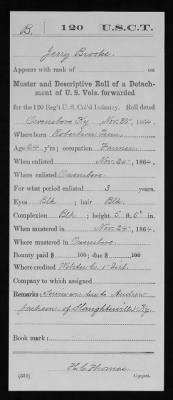 B. 120 U.S.C.T.
Jerry Brooke
Appears with rank of
Muster and Descriptive Roll of a Detach-
ment of U. S. Vols. forwarded
for the 120 Reg't U.S. Col'd Infantry. Roll dated
Owensboro Ky Nov. 25, 1864.
Where born Robertson Tenn.
Age 24 y'rs; occupation Farmer
When enlisted Nov. 24, 1864.
Where enlisted Owensboro
For what period enlisted 3 years.
Eyes Blk; hair Blk.
Complexion Blk; height 5 ft. 6 in.
When mustered in Nov. 24, 1864.
Where mustered in Owensboro
Bounty paid $ 100; due $ 100
Where credited Webster Co. Dist.
Company to which assigned
Remarks: Service due to Andrew
Jackson of Slaughtersville Ky.
Book mark:
H. C. Thomas
Copyist.